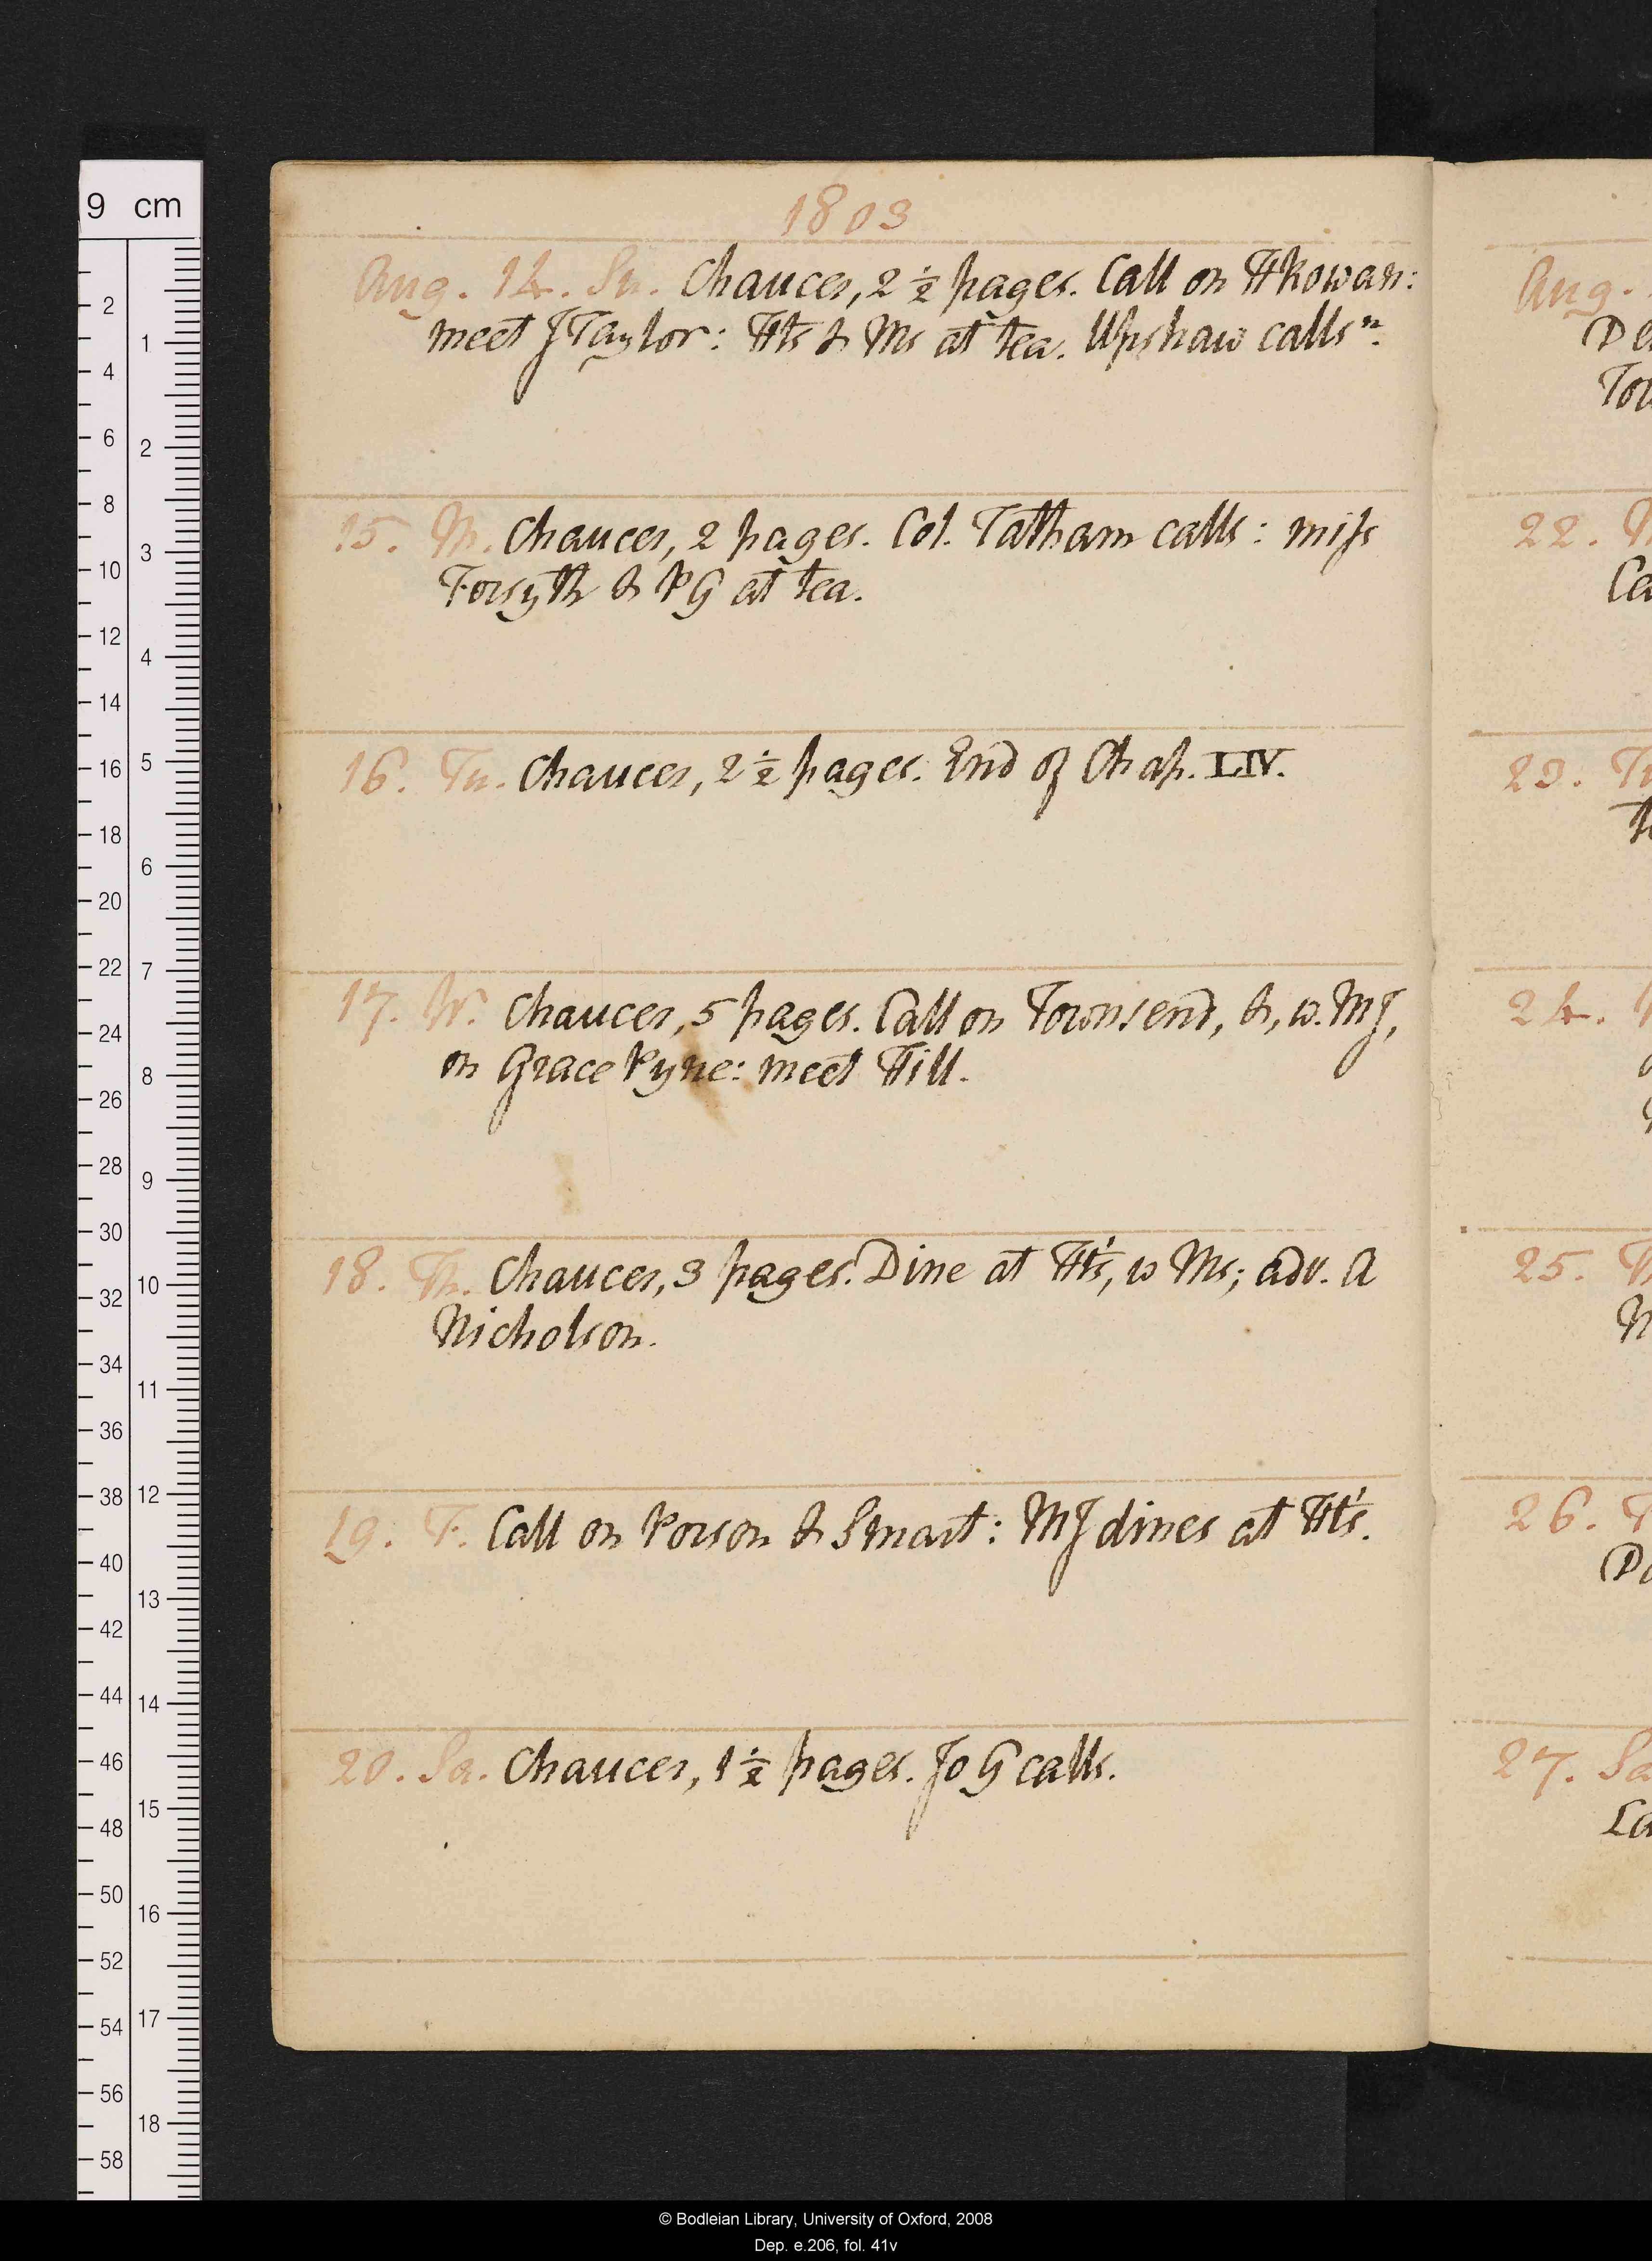 1803
Aug. 14. Su. Chaucer, 2 ½ pages. Call on H Rowan:
meet J Taylor: Hts & Ms at tea. Upshaw calls n.
15. M. Chaucer, 2 pages. Col. Tatham calls: miss
Forsyth & P G at tea.
16. Tu. Chaucer, 2 ½ pages. End of Chap. LIV.
17. W. Chaucer, 5 pages. Call on Townsend, &, w. M J,
on Grace Pyne: meet Hill.
18. Th. Chaucer, 3 pages. Dine at Ht's, w Ms; adv. A
Nicholson.
19. F. Call on Porson & Smart: M J dines at Ht's.
20. Sa. Chaucer, 1 ½ pages. Jo G calls.
Aug.
22.
23. Tu
24.
25.
26.
27. Sa
9 cm
2
4
6
8
10
12
14
16
18
20
22
24
26
28
30
32
34
36
38
40
42
44
46
48
50
52
54
56
58
1
2
3
4
5
6
7
8
9
10
11
12
13
14
15
16
17
18
© Bodleian Library, University of Oxford, 2008
Dep. e.206, fol. 41v